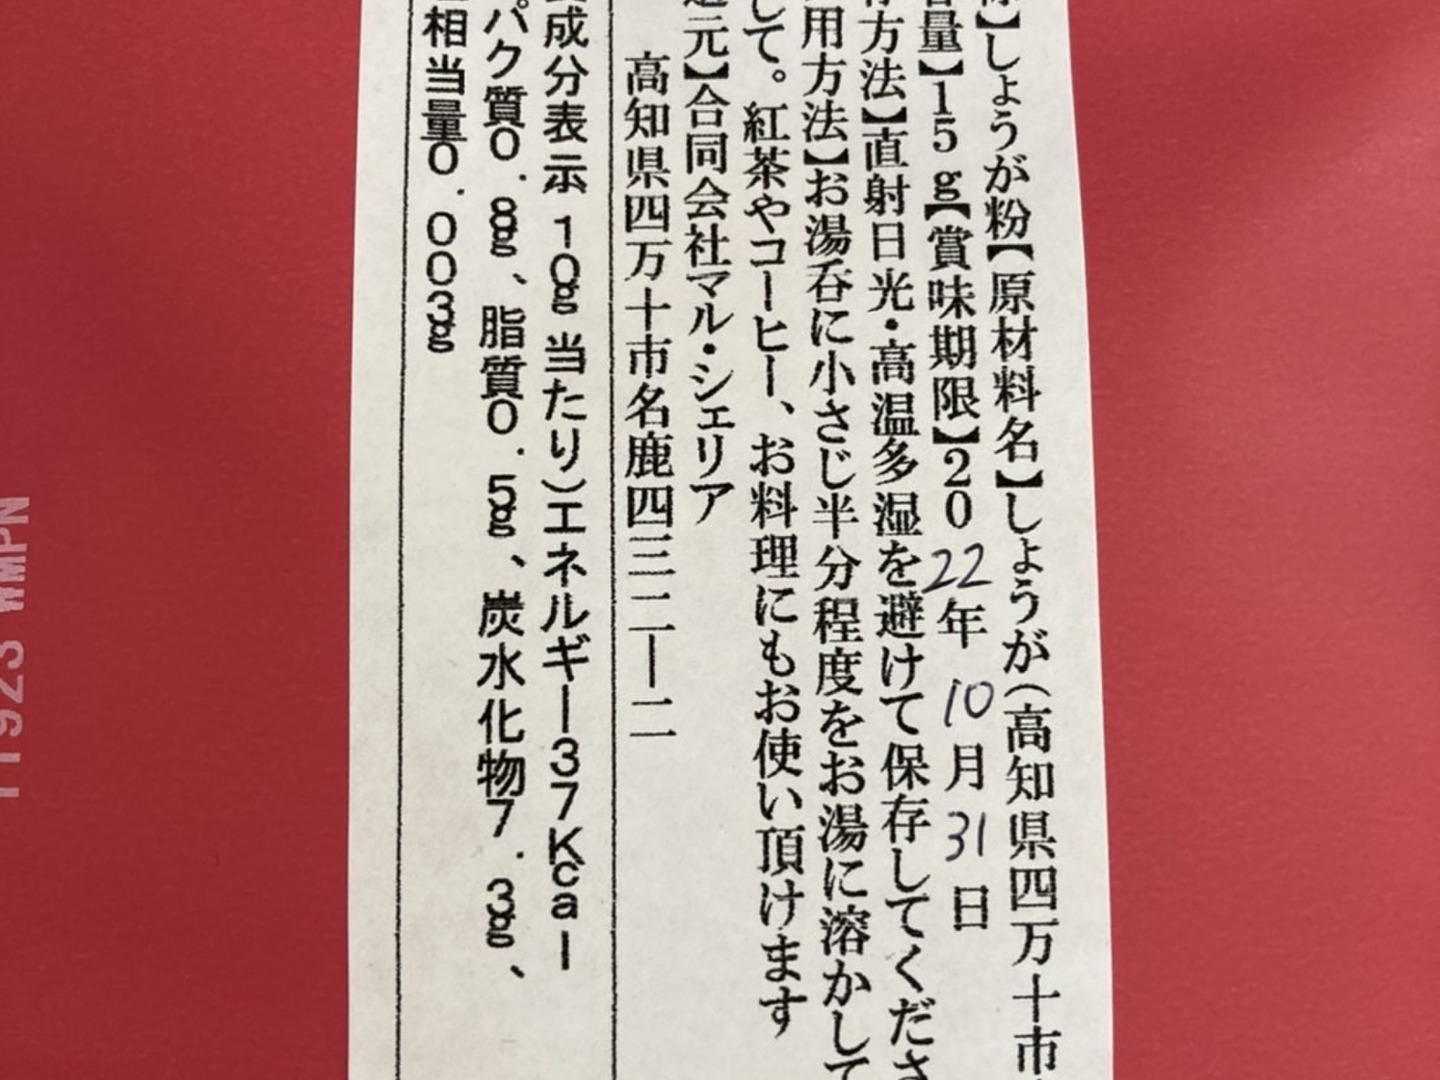 称】しょうが粉【原材料名】しょうが(高知県四万十市
容量】15g【賞味期限】2022年10月31日
存方法】直射日光・高温多湿を避けて保存してくださ
用方法】お湯呑に小さじ半分程度をお湯に溶かして
して。紅茶やコーヒー、お料理にもお使い頂けます
造元】合同会社マル・シェリア
高知県四万十市名鹿四三二ー二
成分表示 10g当たり)エネルギー37Kcal
パク質0.8g、脂質0.5g、炭水化物7.3g、
相当量0.003g
11923 WMPN